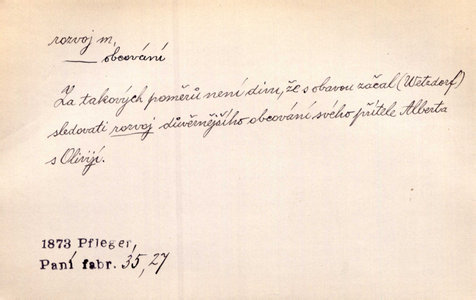 rozvoj m.
obcování
Za takových poměrů není divu, že s obavou začal (Wetzdorf)
sledovati rozvoj důvěrnějšího obcování svého přítele Alberta
s Olivijí.
1873 Pfleger,
Paní fabr. 35,27